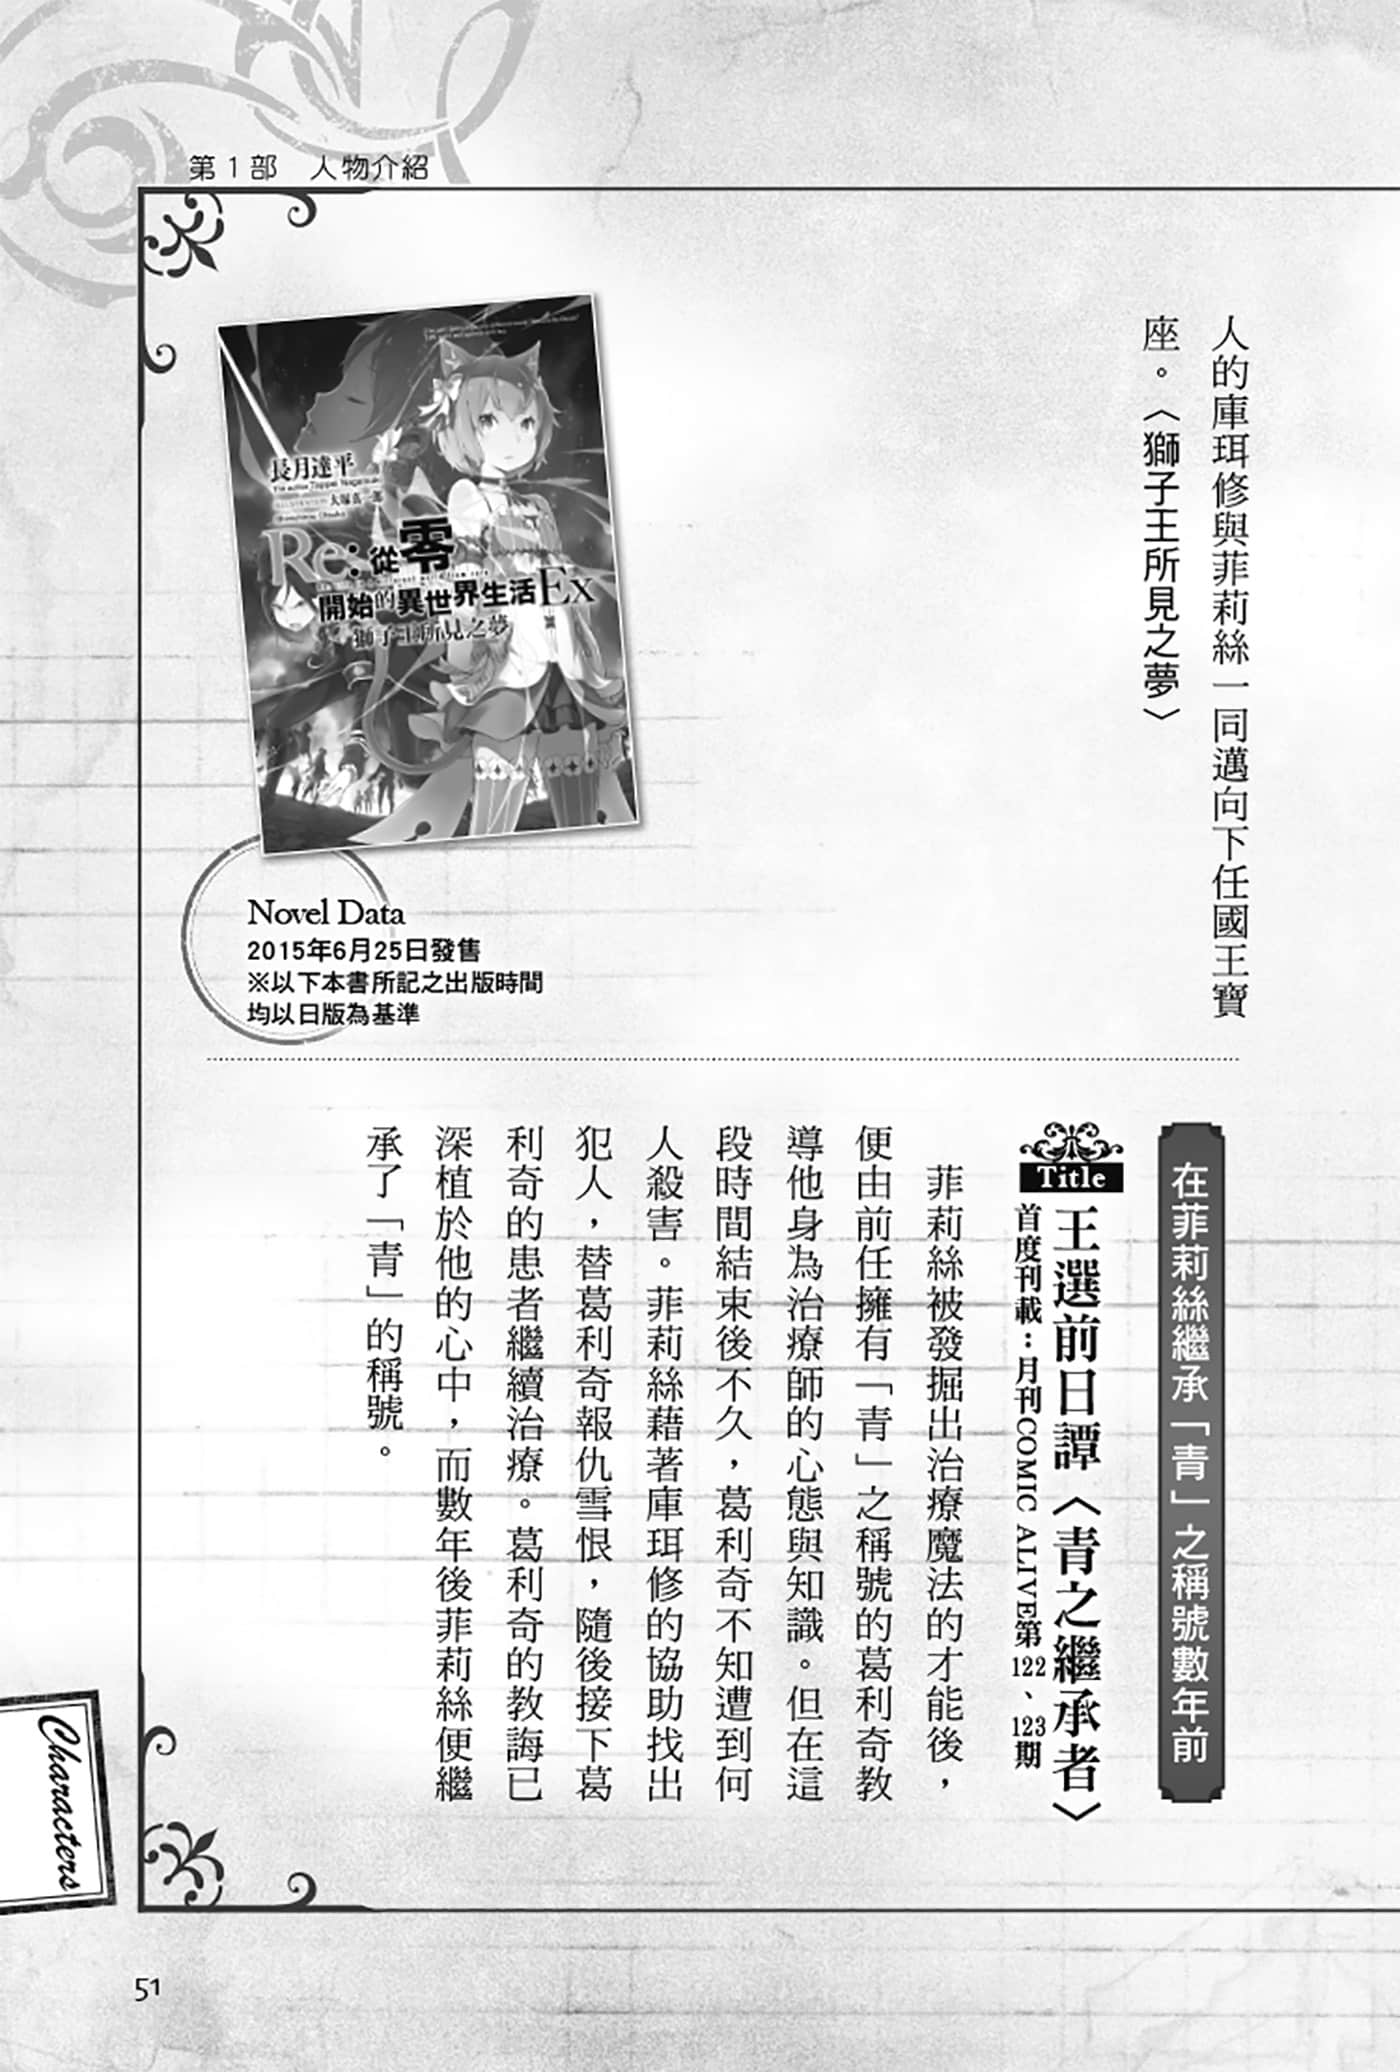 第1部　人物介紹
人的庫珥修與菲莉絲一同邁向下任國王寶
座。〈獅子王所見之夢〉
長月達平
大塚真一郎
Re:從零
開始的異世界生活Ex
獅子王所見之夢
Novel Data
2015年6月25日發售
※以下本書所記之出版時間
均以日版為基準
在菲莉絲繼承「青」之稱號數年前
Title
王選前日譚〈青之繼承者〉
首度刊載：月刊COMIC ALIVE第122、123期
菲莉絲被發掘出治療魔法的才能後，
便由前任擁有「青」之稱號的葛利奇教
導他身為治療師的心態與知識。但在這
段時間結束後不久，葛利奇不知遭到何
人殺害。菲莉絲藉著庫珥修的協助找出
犯人，替葛利奇報仇雪恨，隨後接下葛
利奇的患者繼續治療。葛利奇的教誨已
深植於他的心中，而數年後菲莉絲便繼
承了「青」的稱號。
Characters
51